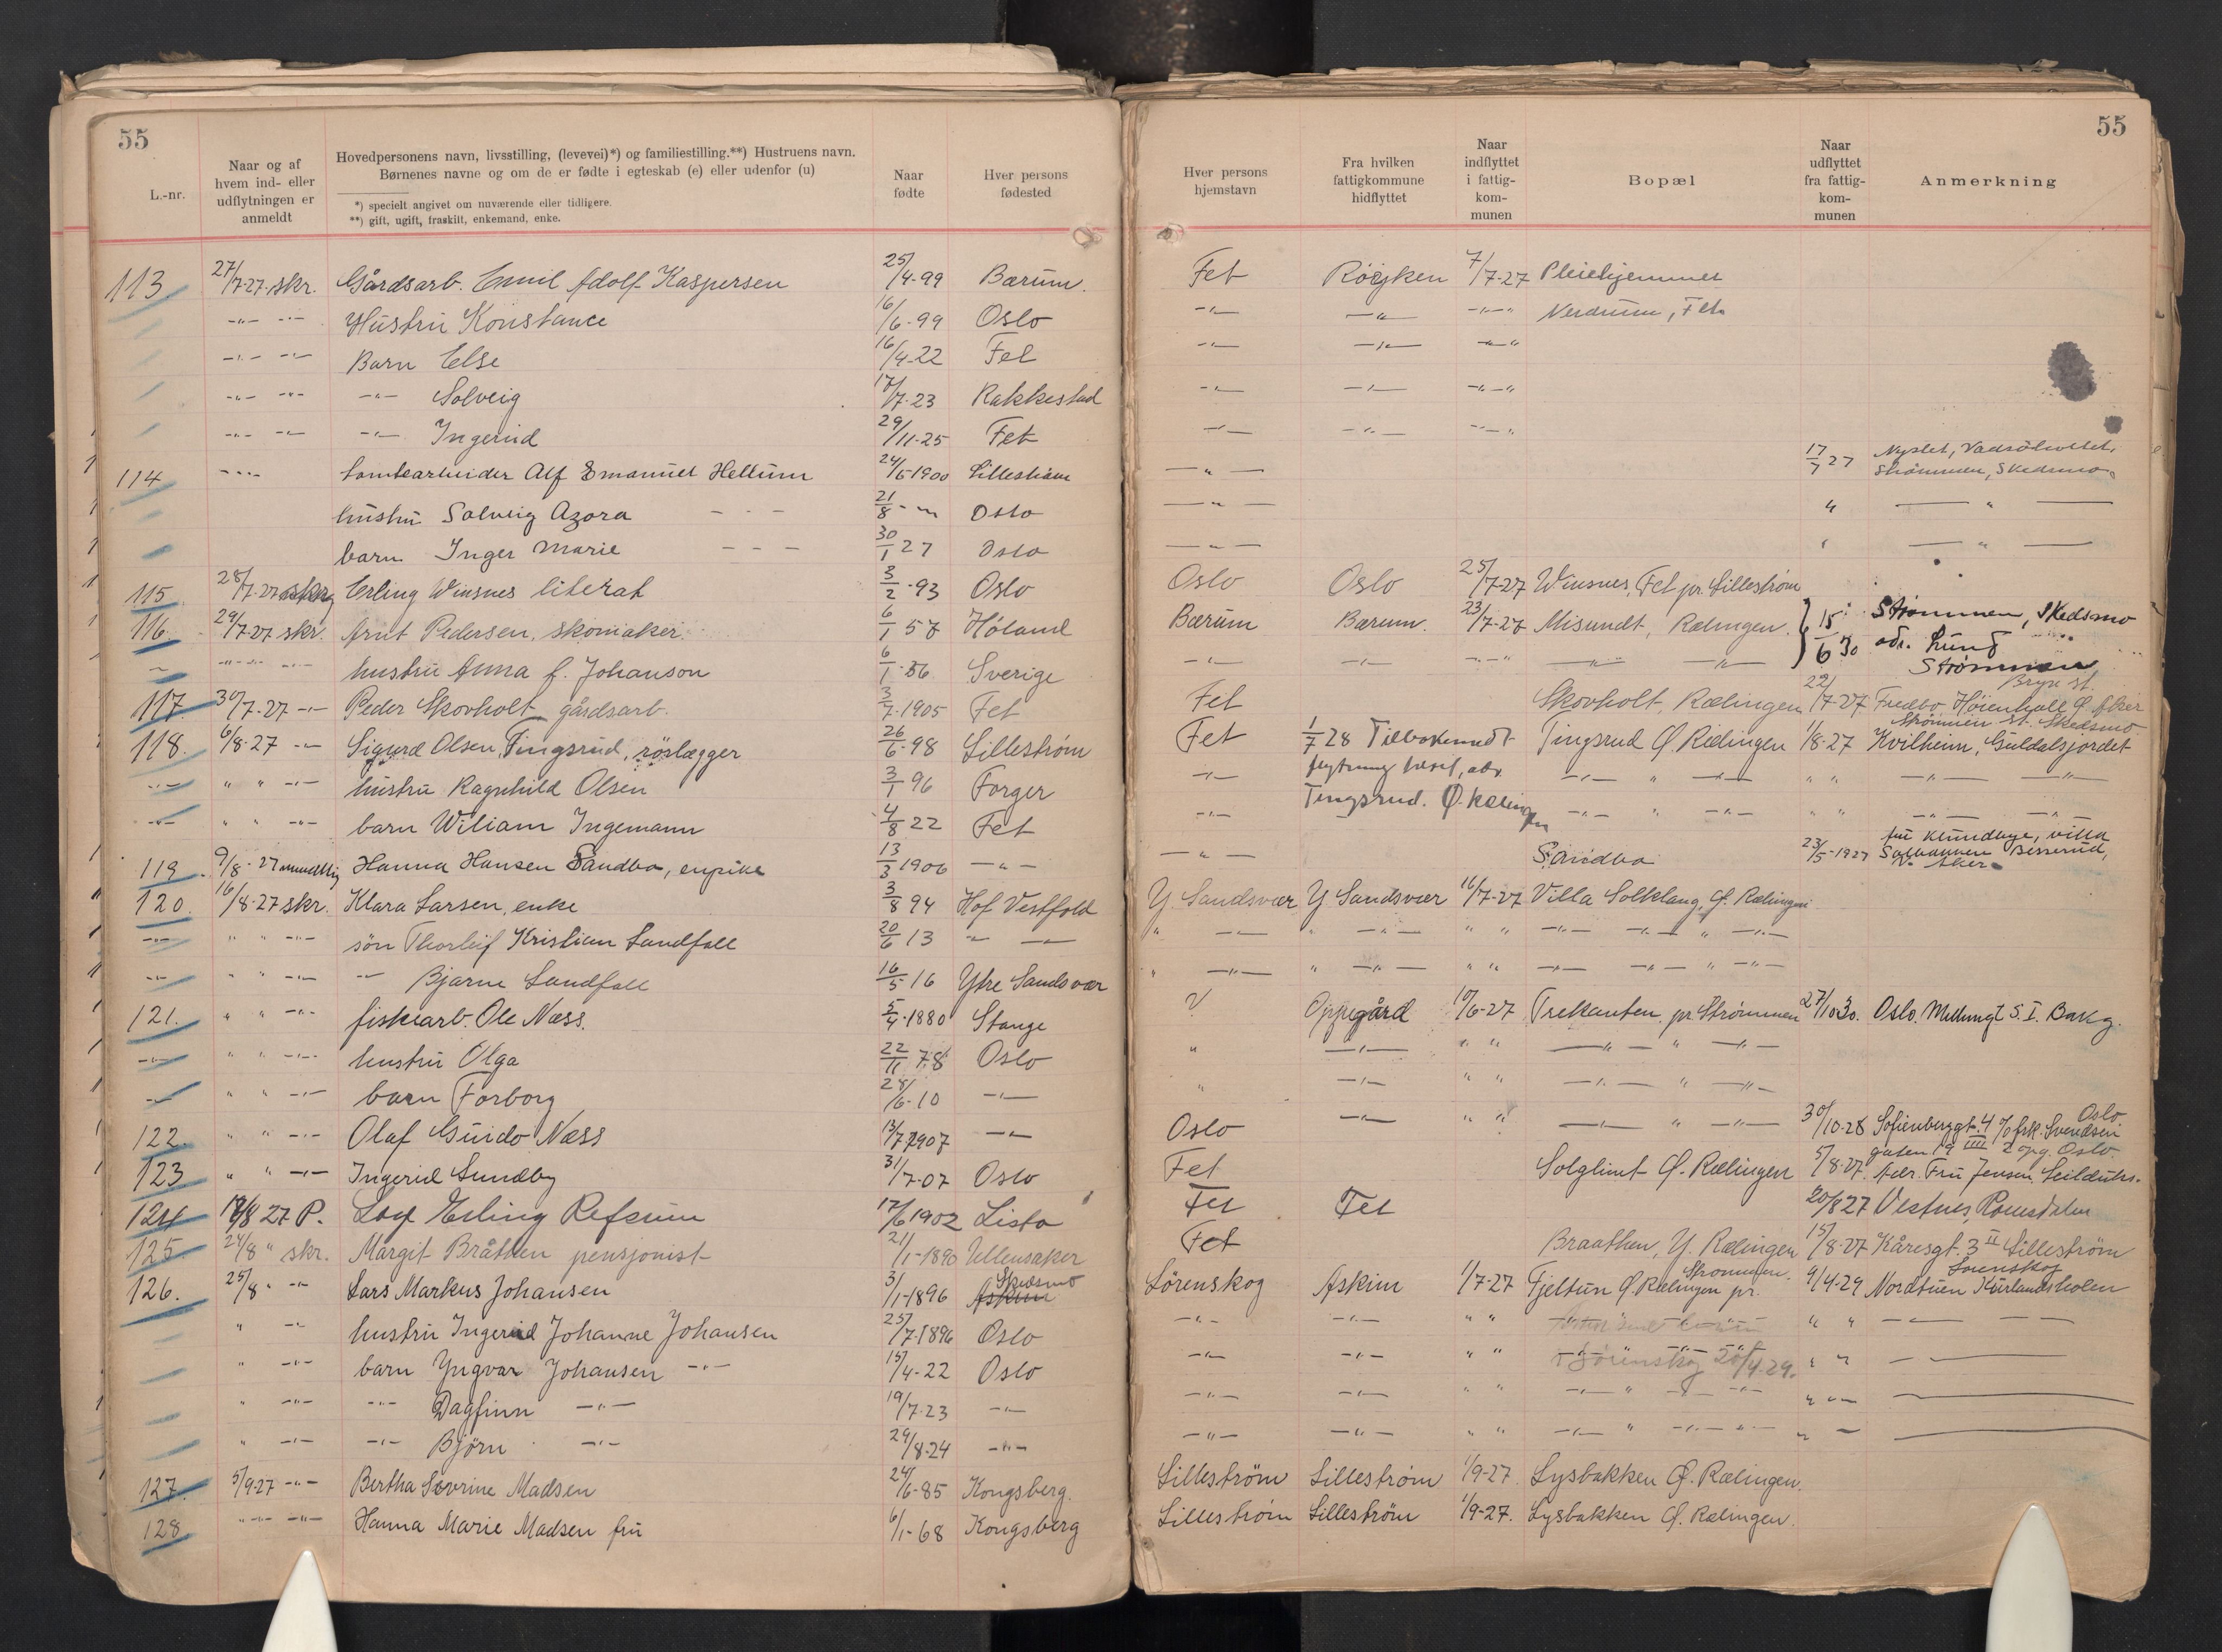 55
L.-nr.
Naar og af hvem ind- eller udflytningen er anmeldt
Hovedpersonens navn, livsstilling, (levevei)*) og familiestilling.**) Hustruens navn.
Børnenes navne og om de er fødte i egteskab (e) eller udenfor (u)
*) specielt angivet om nuværende eller tidligere.
**) gift, ugift, fraskilt, enkemand, enke.
Naar fødte
Hver persons fødested
Hver persons hjemstavn
Fra hvilken fattigkommune hidflyttet
Naar indflyttet i fattig-kom-munen
Bopæl
Naar udflyttet fra fattig-kom-munen
Anmerkning
55
113 27/7-27 skr. Gårdsarb. Emil Adolf Kaspersen 25/4-99 Bærum. Fet Röyken 7/7-27 Pleiehjemmet
-"- -"- Hustru Konstance 16/6-99 Oslo -"- -"- -"- Nerdrum, Fet
-"- -"- Barn Else 16/4-22 Fet -"- -"- -"-
-"- -"- -"- Solveig 17/7-23 Rakkestad -"- -"- -"-
-"- -"- -"- Ingerid 29/11-25 Fet -"- -"- -"-
114 -"- tomtearbeider Alf Emanuel Hellum 24/5 1900 Lilleström -"- 17/7 27 Nyslet,
Strömmen, Skedsmo
hustru Solveig Azora 21/8 -"- Oslo -"- " -"-
barn Inger Marie 30/1 27 Oslo -"- " -"-
115 28/7-27 Erling Winsnes literat 3/2-93 Oslo Oslo Oslo 25/7-27 Winsnes, Fet pr. Lilleström
116. 29/7-27 skr. Arnt Pedersen, skomaker 6/1 57 Höland Bærum Bærum. 23/7-27 Misundt, Rælingen. 15/6 30 Strömmen, Skedsmo
adr. Lund
Strömmen
-"- -"- hustru Anna f. Johanson 6/1-56 Sverige -"- -"- -"- -"- -"-
117. 30/7-27 -"- Peder Skovholt gårdsarb. 3/7-1905 Fet Fet Skovholt, Rælingen 22/7-27 Fredbo Höienhall Ö. Aker
Bryn st.
118. 6/8-27 -"- Sigurd Olsen Tingsrud, rörlægger 26/6-98 Lilleström Fet 1/7 28 Tilbakemeldt Tingsrud Ö. Rælingen 1/8-27 Kvilheim, Guldalsjordet
Strömmen st. Skedsmo
-"- " " -"- hustru Ragnhild Olsen 3/1 96 Forger -"- Tingsrud. Ö. Rælingen -"- " -"- " " -"- -"-
-"- " " -"- barn Wiliam Ingemann 4/8 22 Fet -"- -"- " -"- " " -"- -"-
119. 9/8-27 mundtlig Hanna Hansen Sandbo, enpike 13/3 1906 -"- -"- Sandbo 23/5-1927 fru Klundbye, villa
Besserud,
V. Aker
120. 16/8-27 skr. Klara Larsen, enke 3/8 94 Hof Vestfold Y. Sandsvær Y. Sandsvær 16/7-27 Villa Solklang, Ö. Rælingen
-"- " " -"- sön Thorleif Kristian Sundfall 20/6 13 -"- -"- " -"- " -"- " " -"- -"- " -"-
-"- " " -"- -"- Bjarne Sundfall 16/5 16 Ytre Sandsvær " -"- " -"- " " -"- -"- " -"-
121. " " -"- fiskearb. Ole Næss. 5/4-1880 Stange Oppegård 10/6-27 Trekanten pr Strömmen 27/10 30. Oslo.
-"- " " -"- hustru Olga 22/11 78 Oslo " -"- " " -"- " -"-
-"- " " -"- barn Torborg 28/6-10 -"- " -"- " " -"- " -"-
122. " " -"- Olaf Guido Næss 13/7 1907 -"- Oslo -"- " " -"- " -"- 30/10-28 Sofienberggt. 4 c/o frk. Svendsen
Oslo
123 " " -"- Ingerid Sundby 31/7-07 Oslo Fet Solglimt Ö. Rælingen 5/8-27. Adr. Fru Jensen, Seilduks-
gaten 19 IIII 2 opg. Oslo
124 19/8 27 P. Leif Erling Refsum 17/6 1902 Lista Fet Fet 20/8 27 Vestnes, Romsdalen
125 24/8 " skr. Margit Bråthen pensjonist 21/1-1890 Ullensaker Fet Braathen, Y. Rælingen 15/8-27 Kåresgt. 3 II Lilleström
126. 25/8 " -"- Lars Markus Johansen 3/1-1896 Skedsmo Lörenskog Askim 1/7-27 Fjeltun Ö. Rælingen pr. Strömmen. 9/4-29 Nordtuen Kurlandsholen
Lörenskog
" -"- hustru Ingerid Johanne Johansen 25/7-1896 Oslo -"- -"- " " " " -"- -"-
" -"- barn Yngvar Johansen -"- 15/4-22 Oslo -"- -"- " " Lörenskog 20/4-29. " "
" -"- -"- Dagfinn -"- 19/7-23 -"- -"- -"- " " -"- " -"- -"- " "
" -"- -"- Björn -"- 29/8-24 -"- -"- -"- " " -"- " -"- -"-
127. 5/9-27 -"- Bertha Sevrine Madsen 24/6-85 Kongsberg. Lilleström Lilleström 1/9-27. Lysbakken Ö. Rælingen.
128 -"- -"- Hanna Marie Madsen fru 6/1-68 Kongsberg Lilleström Lilleström 1/9-27. Lysbakken Ö. Rælingen.